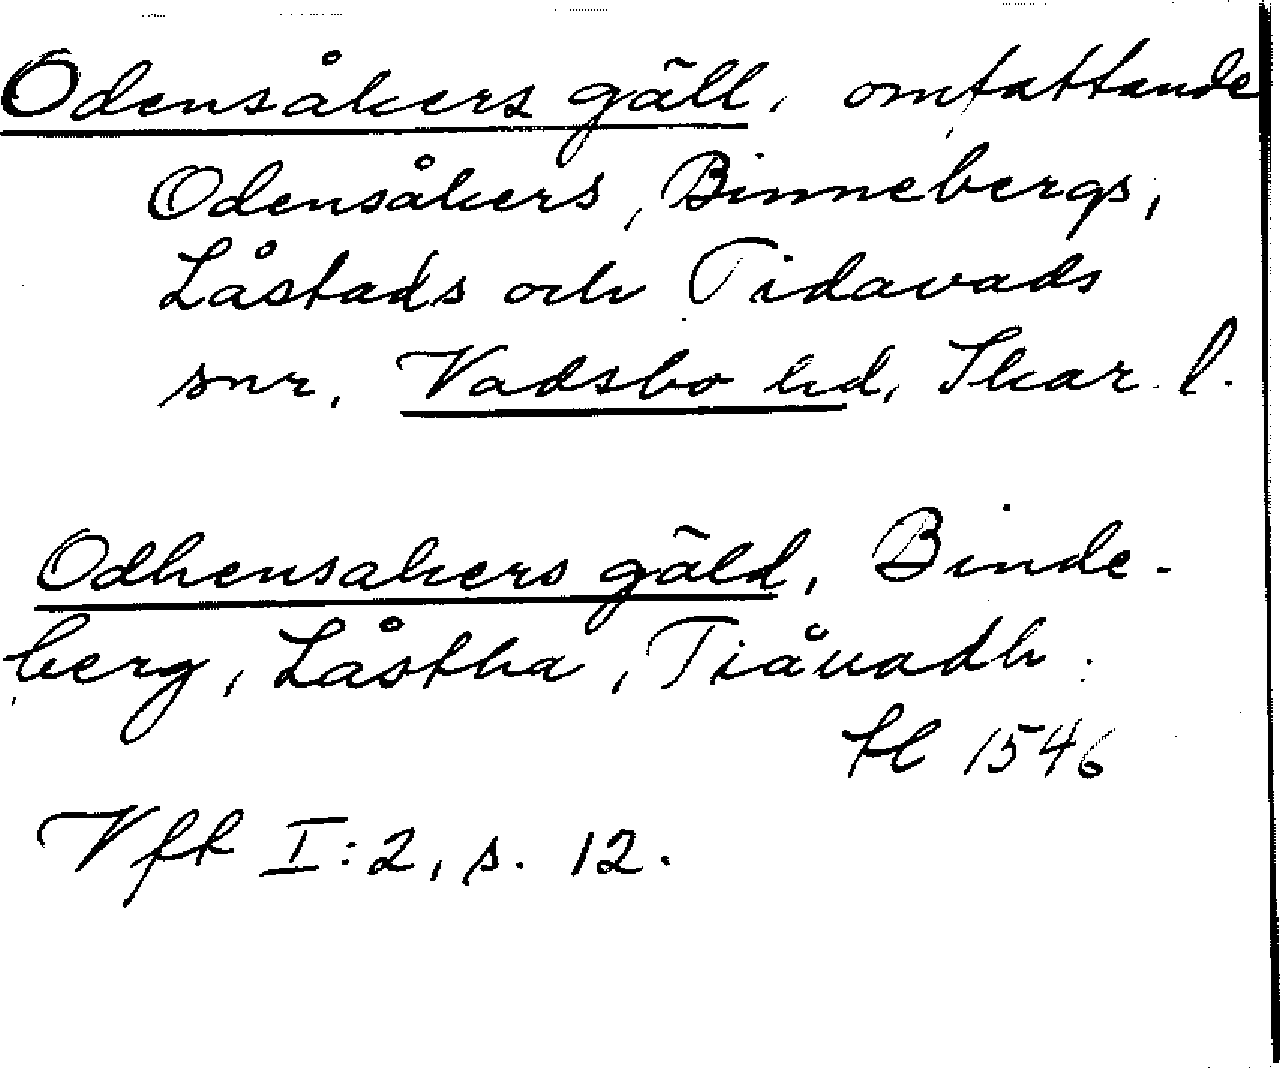 Odensåkers gäll, omfattande
Odensåkers, Binnebergs,
Låstads och Tidavads
snr, Vadsbo hd, Skar. l.
Odhensakers gäld, Binde-
berg, Låstha, Tiåuadh.
fl 1546
Vfk I:2, s. 12.